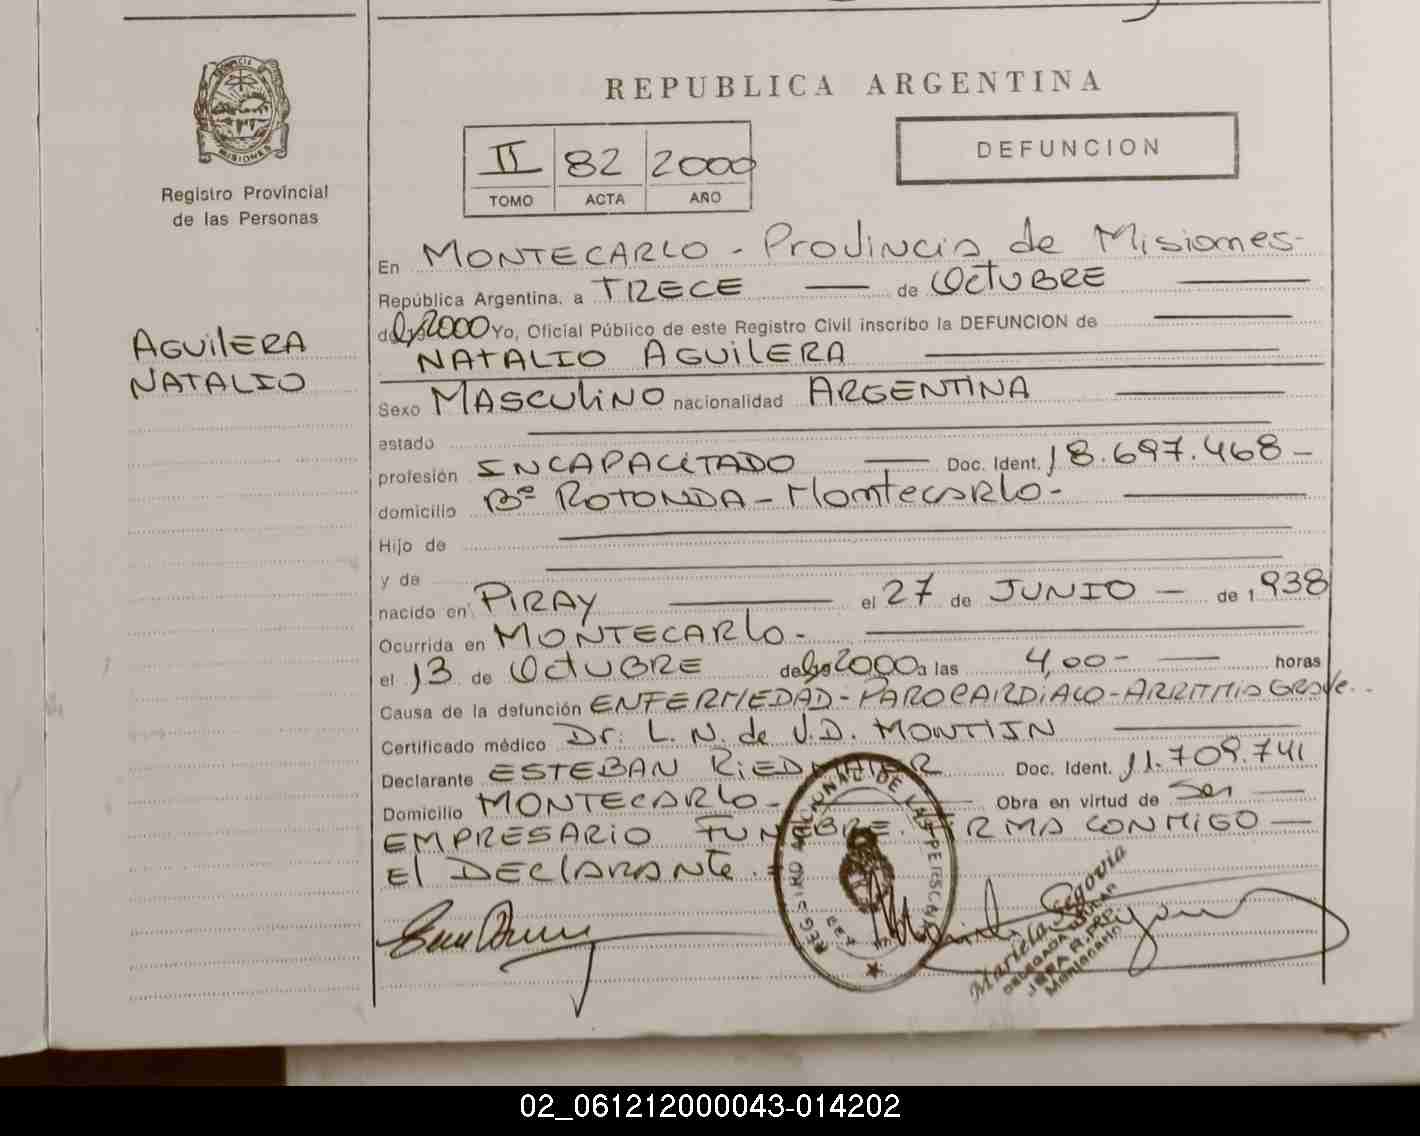 PROVINCIA DE
MISIONES
Registro Provincial
de las Personas
AGUILERA
NATALIO
REPUBLICA ARGENTINA
II 82 2000
TOMO ACTA AÑO
DEFUNCION
En MONTECARLO - Provincia de Misiones-
República Argentina, a TRECE de Octubre
2000 Yo, Oficial Público de este Registro Civil inscribo la DEFUNCION de
NATALIO AGUILERA
Sexo MASCULINO nacionalidad ARGENTINA
estado
profesión INCAPACITADO Doc. Ident. 18.697.468-
domicilio Bº ROTONDA - Montecarlo-
Hijo de
y de
nacido en PIRAY el 27 de JUNIO - de 1938
Ocurrida en MONTECARLO-
el 13 de Octubre 2000 a las 4,00- horas
Causa de la defunción ENFERMEDAD - PAROCARDIACO - ARRITMIA GRAVE.
Certificado médico Dr. L. N. de V.D. MONTIJN
Declarante ESTEBAN Doc. Ident. 11.709.741
Domicilio MONTECARLO- Obra en virtud de Ser
EMPRESARIO FUNEBRE. FIRMA CONMIGO
El DECLARANTE.
Mariela Segovia
02_061212000043-014202